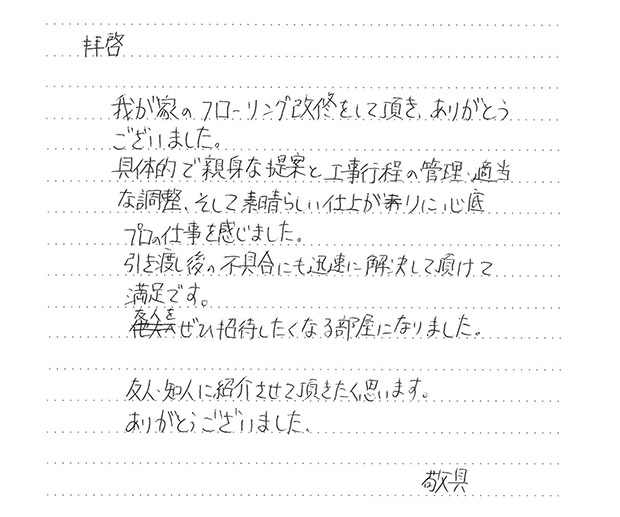 拝啓
我が家のフローリング改修をして頂き、ありがとう
ございました。
具体的で親身な提案と工事行程の管理、適当
な調整、そして素晴らしい仕上がりに心底
プロの仕事を感じました。
引き渡し後の不具合にも迅速に解決して頂けて
満足です。
客人を
ぜひ招待したくなる部屋になりました。
友人・知人に紹介させて頂きたく思います。
ありがとうございました。
敬具